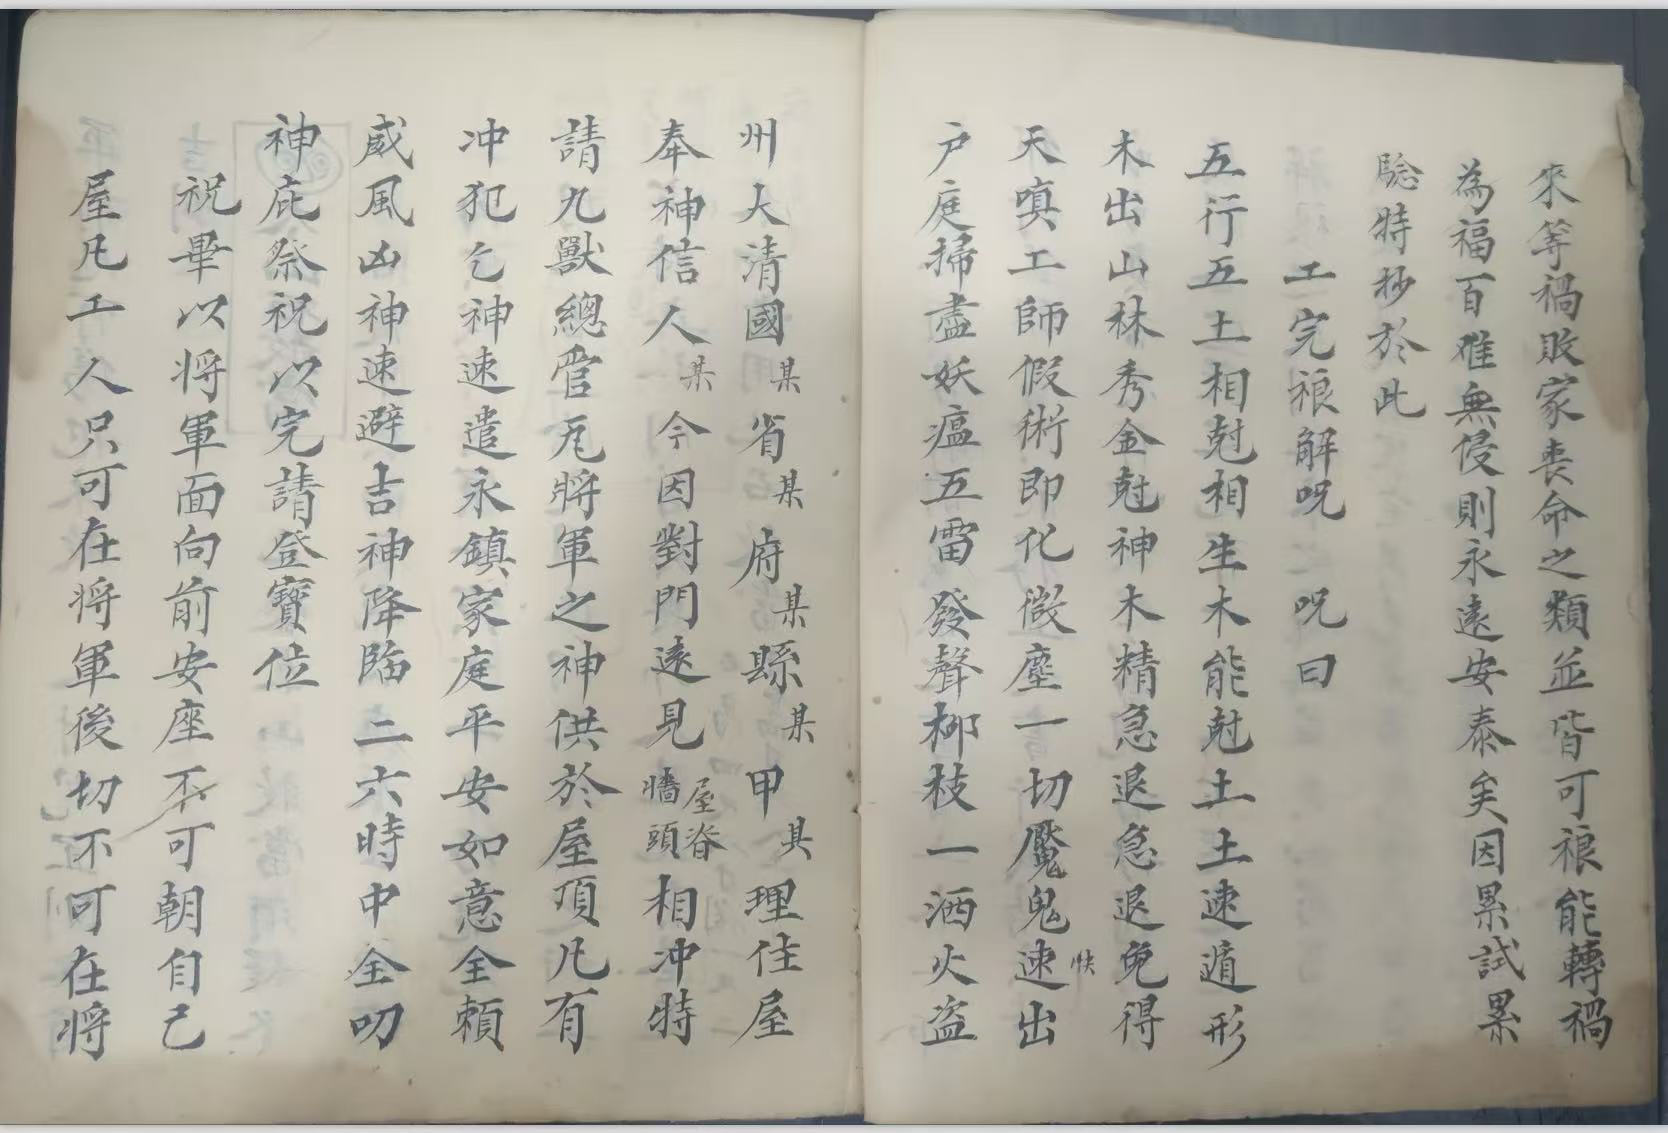 來等禍敗家喪命之類並皆可禳能轉禍
為福百難無侵則永遠安泰矣因累試累
驗特抄於此
工完禳解呪　呪曰
五行五土相尅相生木能尅土土速遁形
木出山林秀金尅神木精急退急退免得
天嗔工師假術即化微塵一切魘鬼速快出
户庭掃盡妖瘟五雷發聲柳枝一洒火盗
州大清國某省某府某縣某甲某理住屋
奉神信人某今因對門遠見屋脊牆頭相冲特
請九獸總管瓦將軍之神供於屋頂凡有
冲犯乞神速遣永鎮家庭平安如意全賴
威風凶神速避吉神降臨二六時中全叨
神庇祭祝以完請登寶位
祝畢以將軍面向前安座不可朝自己
屋凡工人只可在將軍後切不可在將